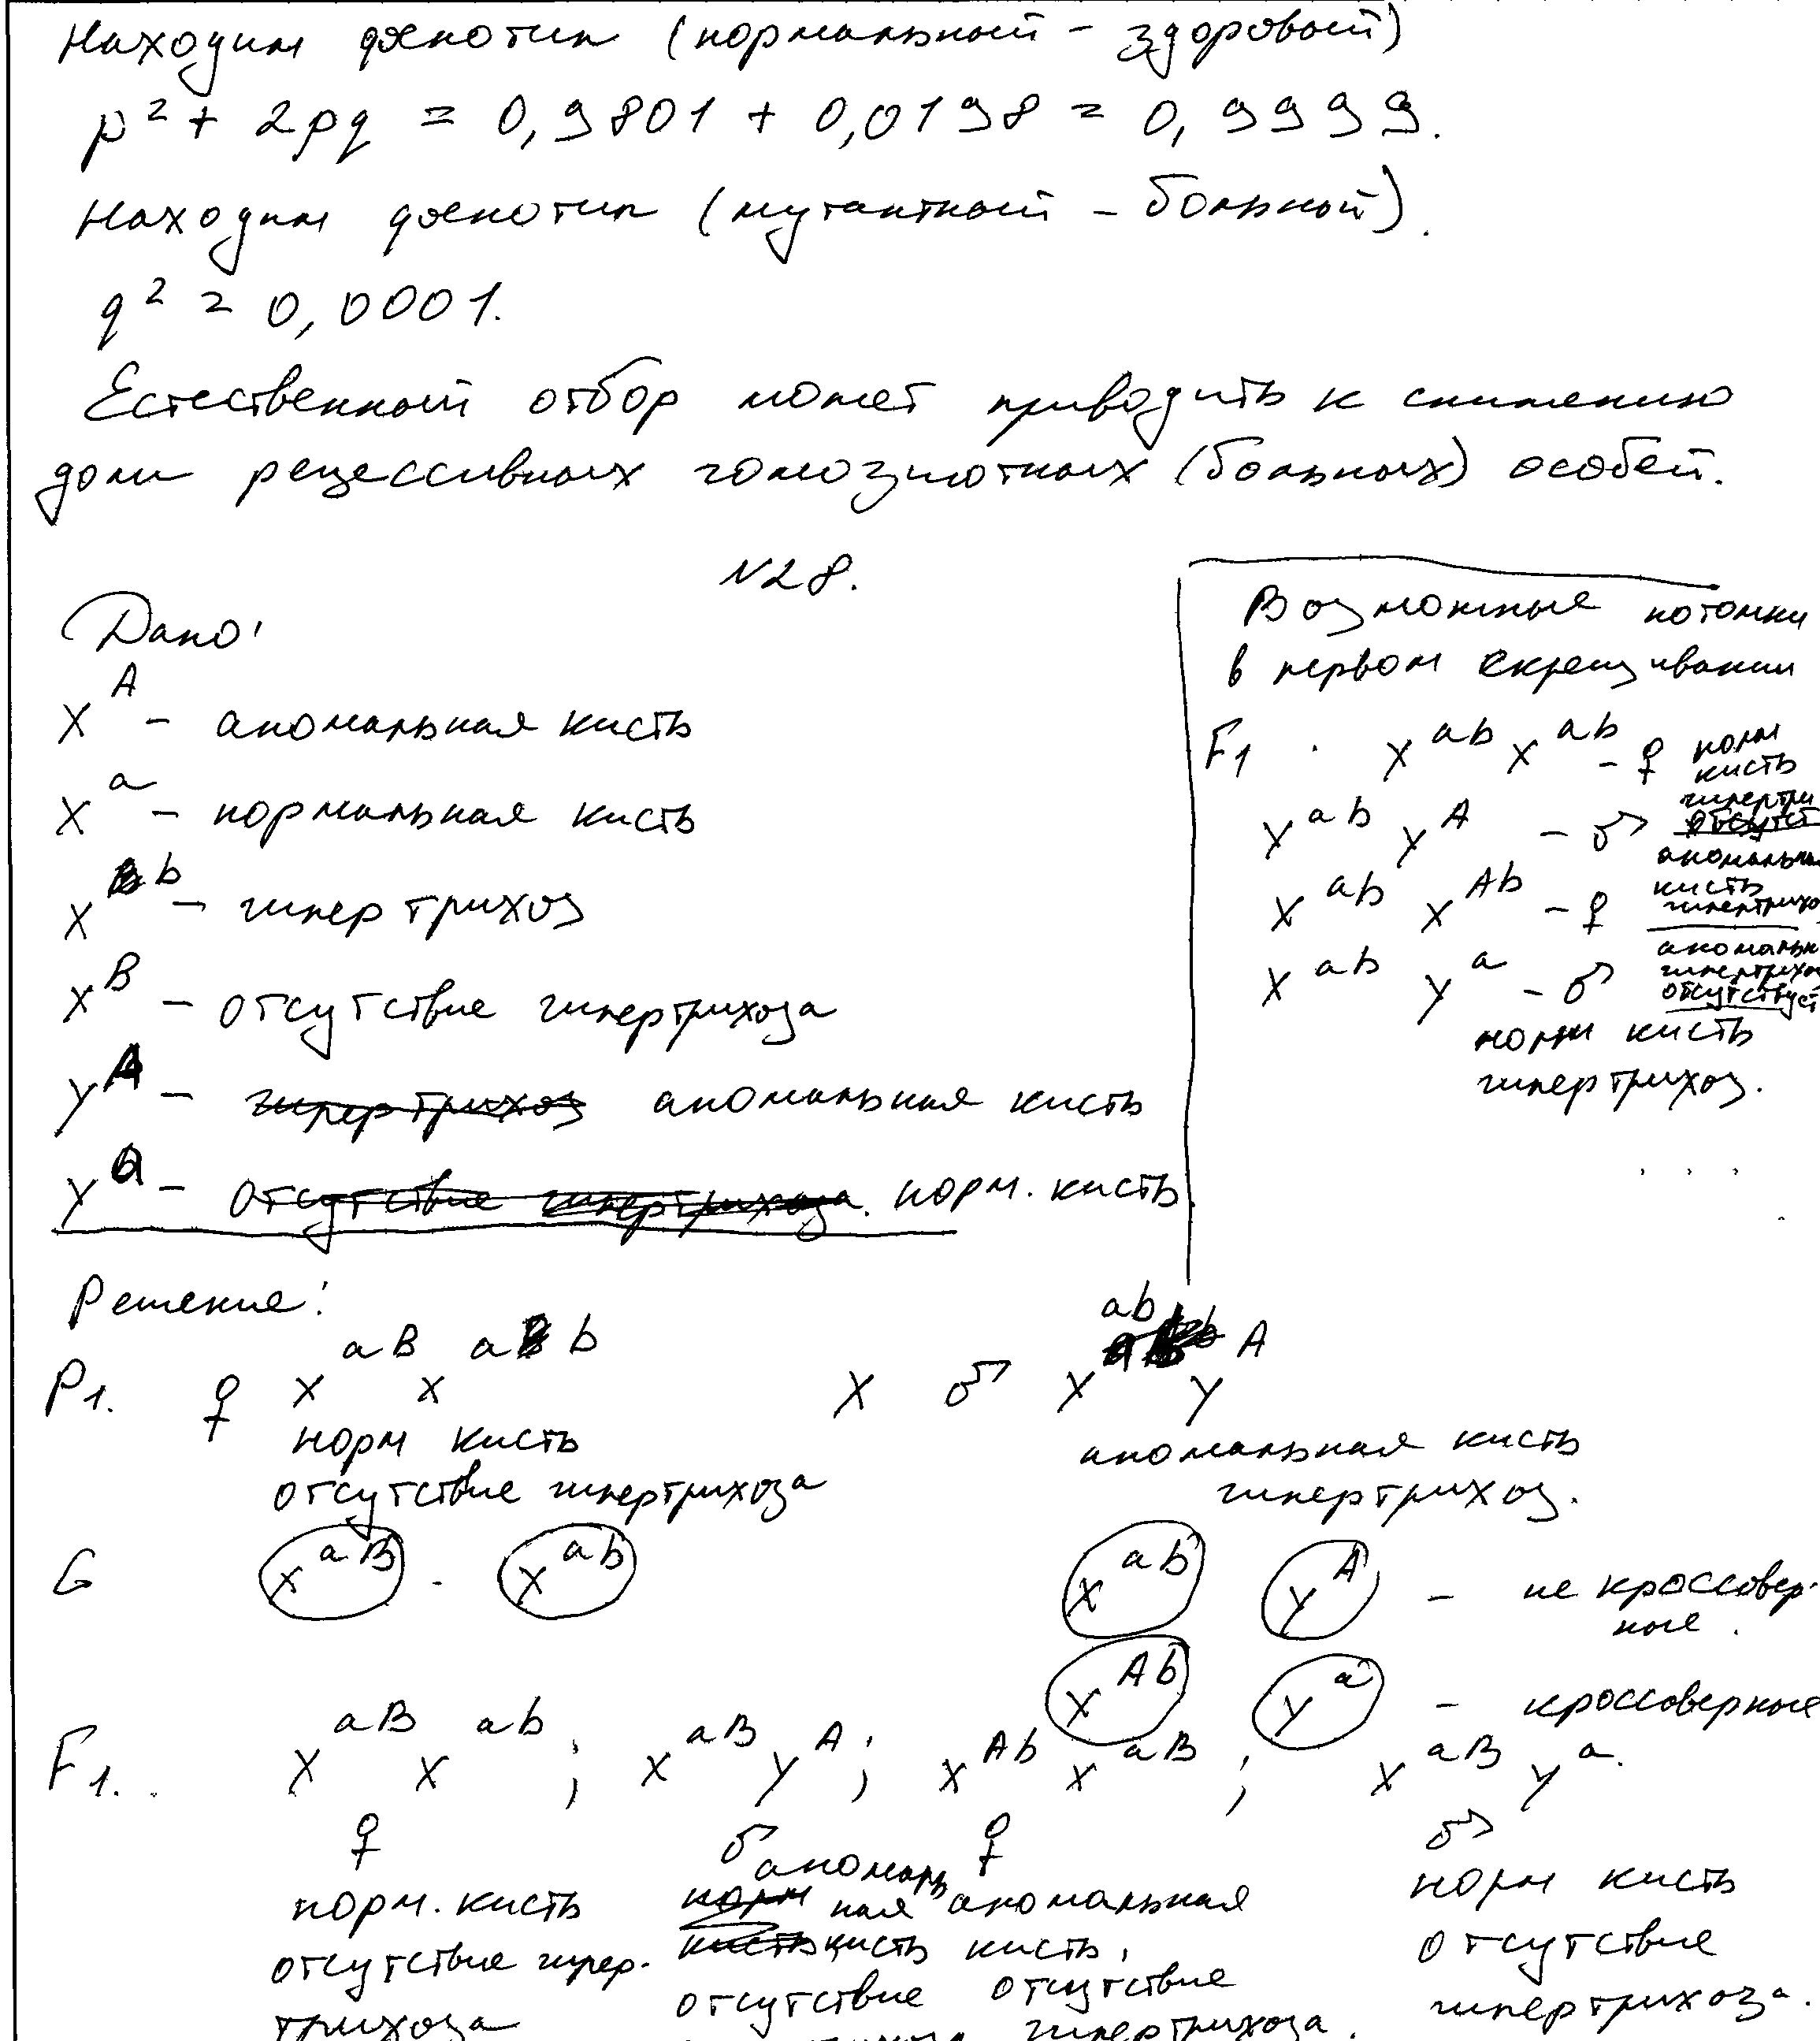 Находим фенотип (нормальный - здоровый)
p² + 2pq = 0,9801 + 0,0198 = 0,9999.
Находим фенотип (мутантный - больной).
q² = 0,0001.
Естественный отбор может приводить к снижению
доли рецессивных гомозиготных (больных) особей.
N28.
Дано:
X^A - аномальная кисть
X^a - нормальная кисть
X^b - гипертрихоз
X^B - отсутствие гипертрихоза
Y^A - гипертрихоз аномальная кисть
Y^a - отсутствие гипертрихоза. норм. кисть
Возможные потомки
в первом скрещивании
F1 X^ab X^ab - ♀ норм
кисть
гипертри
X^ab Y^A - ♂
аномальная
кисть
гипертрихо
X^ab X^Ab - ♀
аномальн
гипертрихоз
отсутствует
X^ab Y^a - ♂
норм кисть
гипертрихоз.
Решение:
P1. ♀ X^aB X^ab X ♂ X^ab Y^A
норм кисть аномальная кисть
отсутствие гипертрихоза гипертрихоз.
G X^aB X^ab X^ab Y^A - не кроссовер-
ные.
X^Ab Y^a - кроссоверные
F1. X^aB X^ab; X^aB Y^A; X^Ab X^aB; X^aB Y^a.
♀ ♂ ♀ ♂
аномаль
норм. кисть норм ная аномальная норм кисть
отсутствие гипер- кисть кисть кисть, отсутствие
трихоза отсутствие отсутствие гипертрихоза.
гипертрихоза.